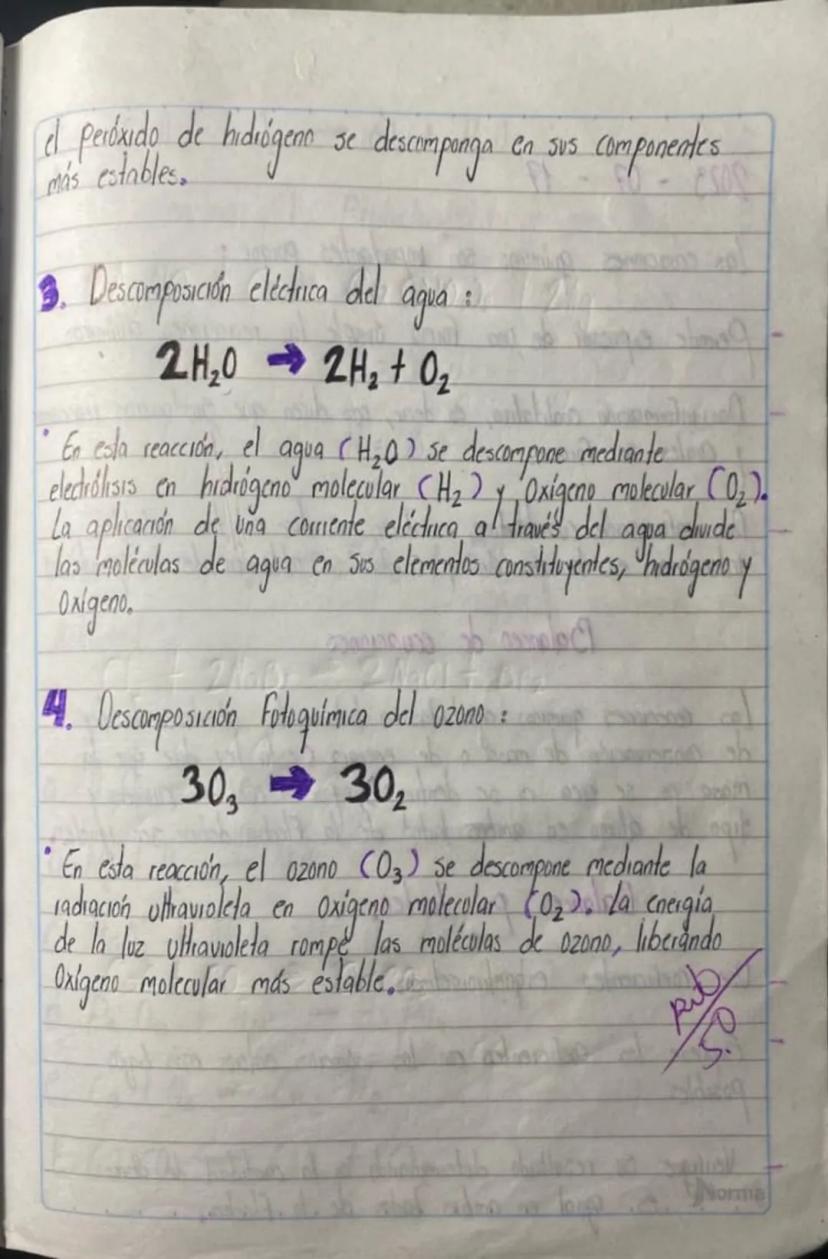 el peróxido de hidrógeno se descomponga en sus componentes
más estables.
3. Descomposición eléctrica del agua :
2H₂O → 2H₂ + O₂
• En esta reacción, el agua (H₂O) se descompone mediante
electrólisis en hidrógeno molecular (H₂) y Oxígeno molecular (O₂).
La aplicación de una corriente eléctrica a través del agua divide
las moléculas de agua en sus elementos constituyentes, hidrógeno y
Oxígeno.
4. Descomposición Fotoquímica del ozono :
3O₃ → 3O₂
• En esta reacción, el ozono (O₃) se descompone mediante la
radiación ultravioleta en Oxígeno molecular (O₂). La energía
de la luz ultravioleta rompe las moléculas de ozono, liberando
Oxígeno molecular más estable.
5.0
Norma